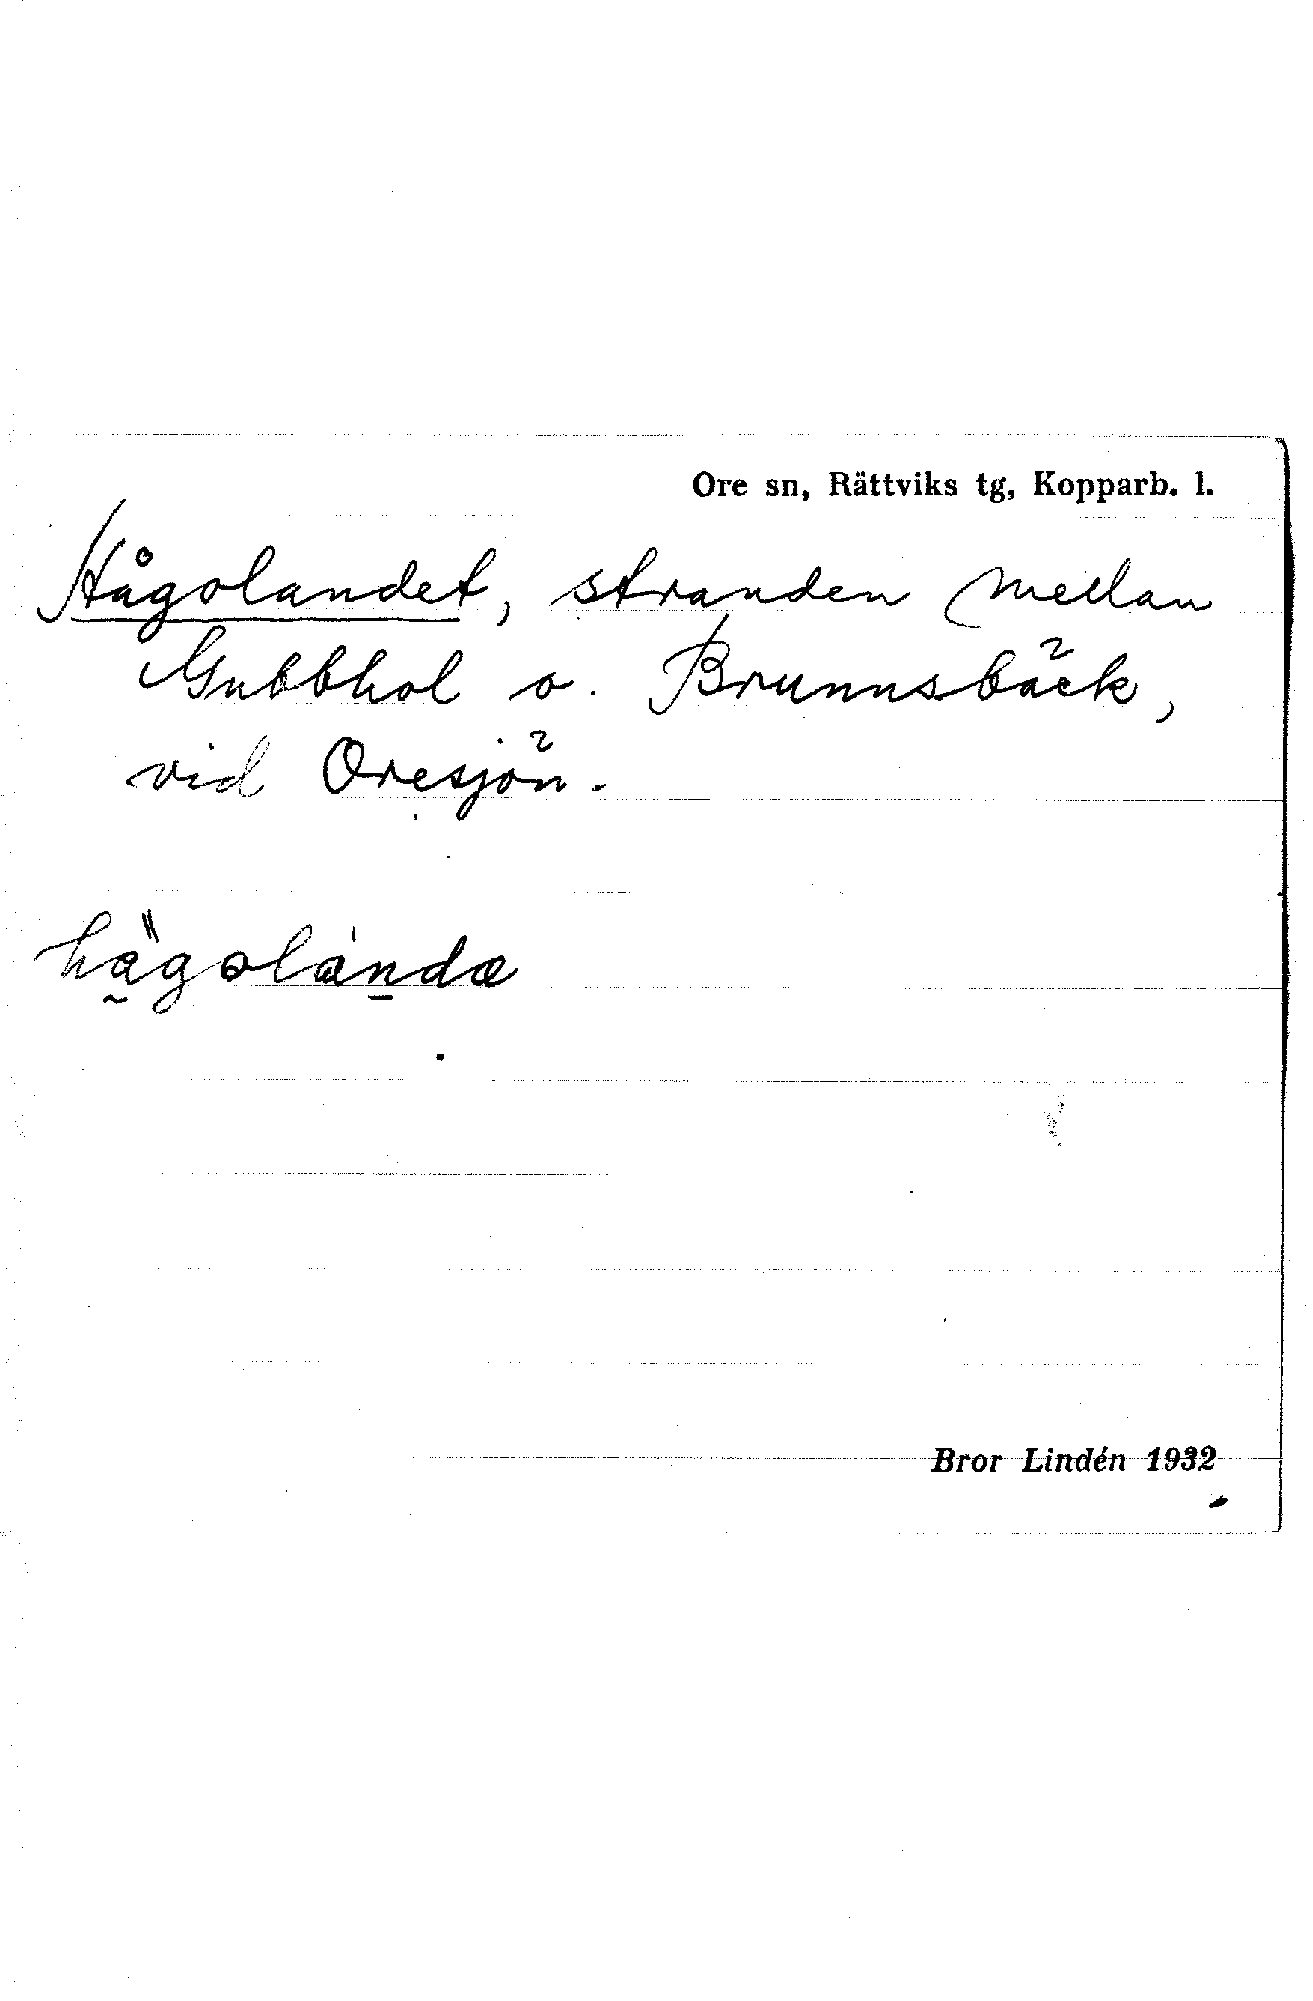 Ore sn, Rättviks tg, Kopparb. l.
Hågolandet, stranden mellan
Gubbhol o. Brunnsbäck,
vid Oresjön.
hågolandæ
Bror Lindén 1932